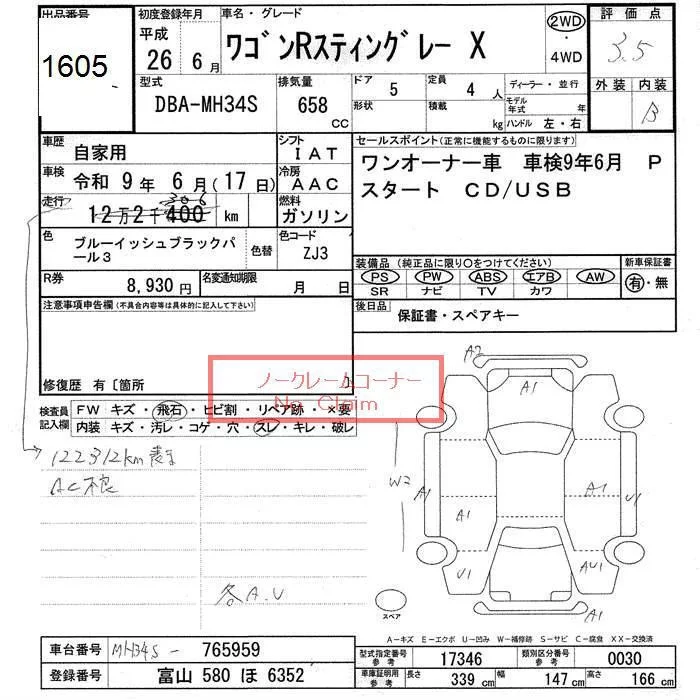 出品番号
1605
初度登録年月
平成
26 6 月
車名・グレード
ワゴンRスティングレー X
2WD
・
4WD
評価点
3.5
外装 内装
B
型式
DBA-MH34S
排気量
658
CC
ドア
5
定員
4 人
形状
積載
kg
ディーラー・並行
モデル年式 年
ハンドル 左・右
車歴
自家用
シフト
IAT
車検
令和 9 年 6 月(17 日)
冷房
AAC
走行
12万2千400 km
306
燃料
ガソリン
色
ブルーイッシュブラックパール3
色替
色コード
ZJ3
R券
8,930 円
名変通知期限
月 日
セールスポイント(正常に機能するものに限ります)
ワンオーナー車 車検9年6月 P
スタート CD/USB
装備品(純正品に限り○をつけてください)
PS PW ABS エアB AW
SR ナビ TV カワ
新車保証書
有・無
後日品
保証書・スペアキー
注意事項申告欄(不具合内容等は具体的に記入して下さい)
修復歴 有〔箇所 〕
ノークレームコーナー
No Claim
検査員記入欄
FW キズ・飛石・ヒビ割・リペア跡・×要
内装 キズ・汚レ・コゲ・穴・スレ・キレ・破レ
122312km
AC不良
各A.U
A2
A1
W2
A1
A1
A1
U1
U1
AU1
A1
スペア
A-キズ E-エクボ U-凹み W-補修跡 S-サビ C-腐食 XX-交換済
車台番号
MH34S- 765959
登録番号
富山 580 ほ 6352
型式指定番号
参考
17346
類別区分番号
参考
0030
車庫証明用
参考
長さ 339 cm 幅 147 cm 高さ 166 cm